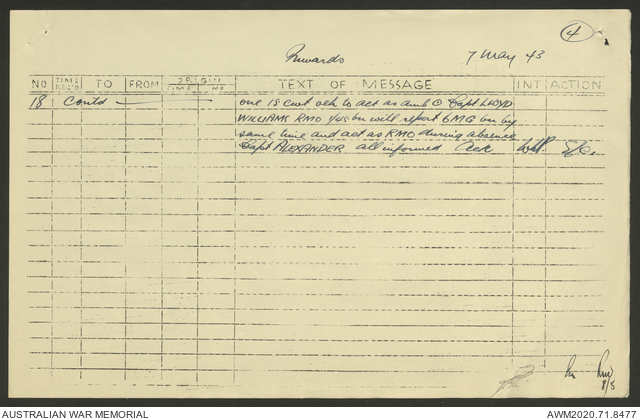 4
Inwards 7 May 43
NO TIME REC'D TO FROM ORIGIN TIME NO. TEXT OF MESSAGE INT ACTION
18 Contd — one 15 cwt veh to act as amb Capt LLOYD
WILLIAMS RMO bn will report 6 MG bn by
same time and act as RMO during absence
Capt ALEXANDER all informed Ack
8/5
AUSTRALIAN WAR MEMORIAL AWM2020.71.8477